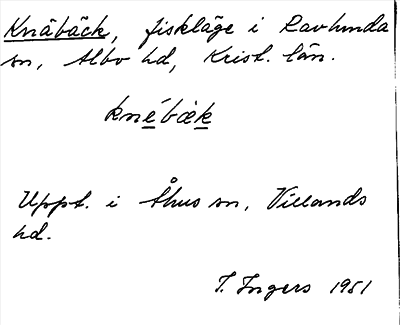 Knäbäck, fiskläge i Ravlunda
sn, Albo hd, Krist. län.
knébæk
Uppt. i Åhus sn, Villands
hd.
I. Ingers 1951